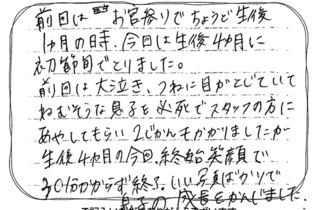 前回は お宮参りでちょうど生後
1ヶ月の日時、今回は生後4ヶ月に
初節句でとりました。
前回は大泣き、つねに目がとじていて
ねむそうな息子を必死でスタッフの方に
あやしてもらい 2じかんもかかりましたが
生後4ヶ月の今回、終始笑顔で
30分かからず終了。いい写真ばかりで
息子の成長をかんじました。